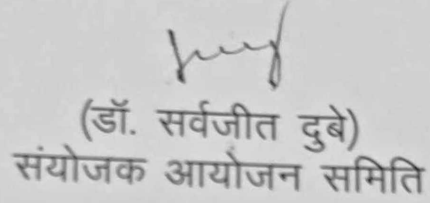 (डॉ. सर्वजीत दुबे)
संयोजक आयोजन समिति